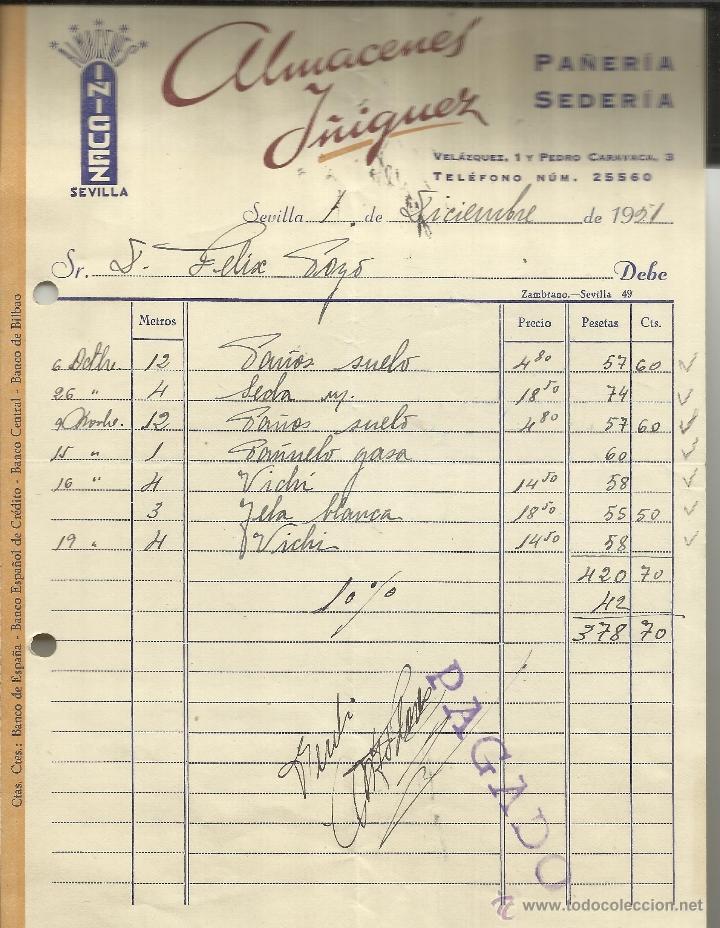 INIGUEZ
SEVILLA
Almacenes
Iñiguez
PAÑERÍA
SEDERÍA
VELÁZQUEZ, 1 Y PEDRO CARAVACA, 3
TELÉFONO NÚM. 25560
Sevilla 1. de Diciembre de 1951
Sr. D. Felix Pozo Debe
Zambrano.—Sevilla 49
Metros Precio Pesetas Cts.
6 Octbre. 12 Paños suelo 4 80 57 60
26 " 4 Seda 18 50 74
9 Novbre. 12 Paños suelo 4 80 57 60
15 " 1 Pañuelo gasa 60
16 " 4 Vichi 14 50 58
3 Tela blanca 18 50 55 50
19 " 4 Vichi 14 50 58
420 70
10 % 42
378 70
Recibí
PAGADO
Ctas. Ctes.: Banco de España - Banco Español de Crédito - Banco Central - Banco de Bilbao
www.todocoleccion.net